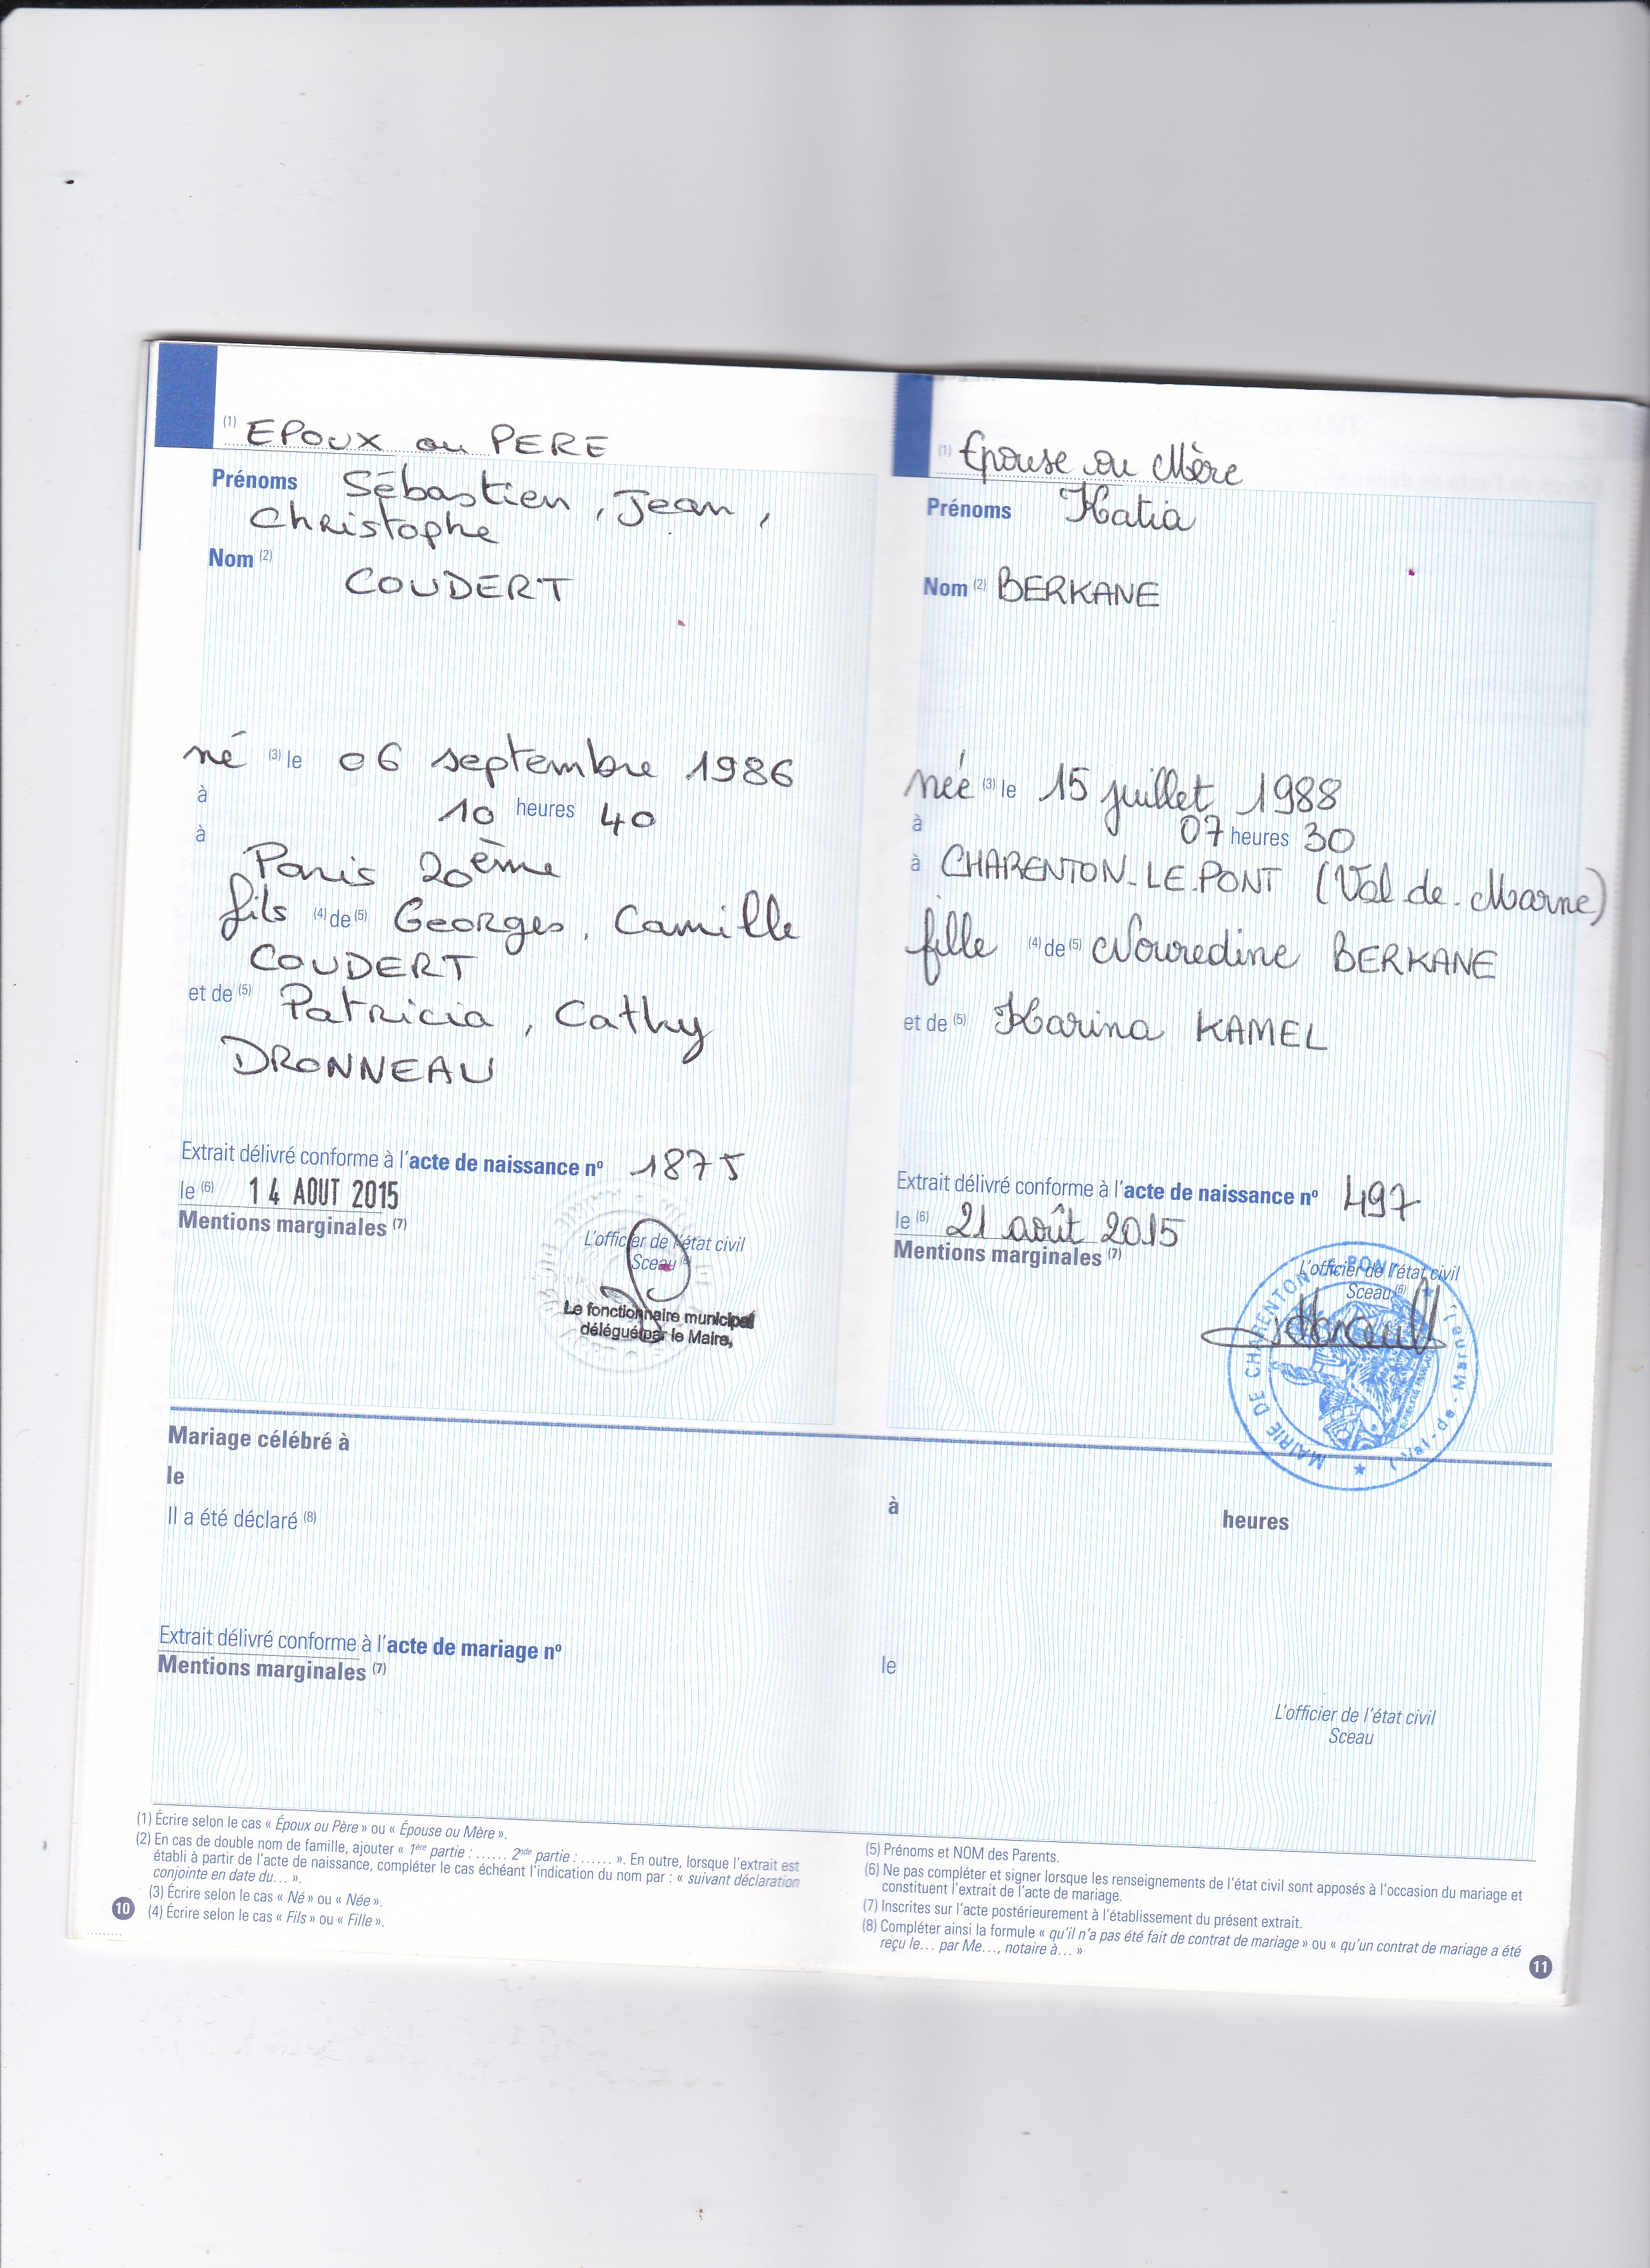 (1) EPOUX ou PERE
Prénoms Sébastien, Jean,
Christophe
Nom (2)
COUDERT
né (3) le 06 septembre 1986
à 10 heures 40
à
Paris 20ème
fils (4) de (5) Georges, Camille
COUDERT
et de (5) Patricia, Cathy
DRONNEAU
Extrait délivré conforme à l'acte de naissance nº 1875
le (6) 14 AOUT 2015
Mentions marginales (7)
L'officier de l'état civil
Sceau
Le fonctionnaire municipal
délégué par le Maire,
(1) Epouse ou Mère
Prénoms Katia
Nom (2) BERKANE
née (3) le 15 juillet 1988
à 07 heures 30
à CHARENTON-LE-PONT (Val-de-Marne)
fille (4) de (5) Nouredine BERKANE
et de (5) Karina KAMEL
Extrait délivré conforme à l'acte de naissance nº 497
le (6) 21 août 2015
Mentions marginales (7)
L'officier de l'état civil
Sceau (6)
MAIRIE DE CHARENTON PONT (Val-de-Marne)
Mariage célébré à
le
à heures
Il a été déclaré (8)
Extrait délivré conforme à l'acte de mariage nº
le
Mentions marginales (7)
L'officier de l'état civil
Sceau
(1) Écrire selon le cas « Époux ou Père » ou « Épouse ou Mère ».
(2) En cas de double nom de famille, ajouter « 1ère partie : ...... 2nde partie : ...... ». En outre, lorsque l'extrait est
établi à partir de l'acte de naissance, compléter le cas échéant l'indication du nom par : « suivant déclaration
conjointe en date du... ».
(3) Écrire selon le cas « Né » ou « Née ».
(4) Écrire selon le cas « Fils » ou « Fille ».
10
(5) Prénoms et NOM des Parents.
(6) Ne pas compléter et signer lorsque les renseignements de l'état civil sont apposés à l'occasion du mariage et
constituent l'extrait de l'acte de mariage.
(7) Inscrites sur l'acte postérieurement à l'établissement du présent extrait.
(8) Compléter ainsi la formule « qu'il n'a pas été fait de contrat de mariage » ou « qu'un contrat de mariage a été
reçu le... par Me..., notaire à... »
11